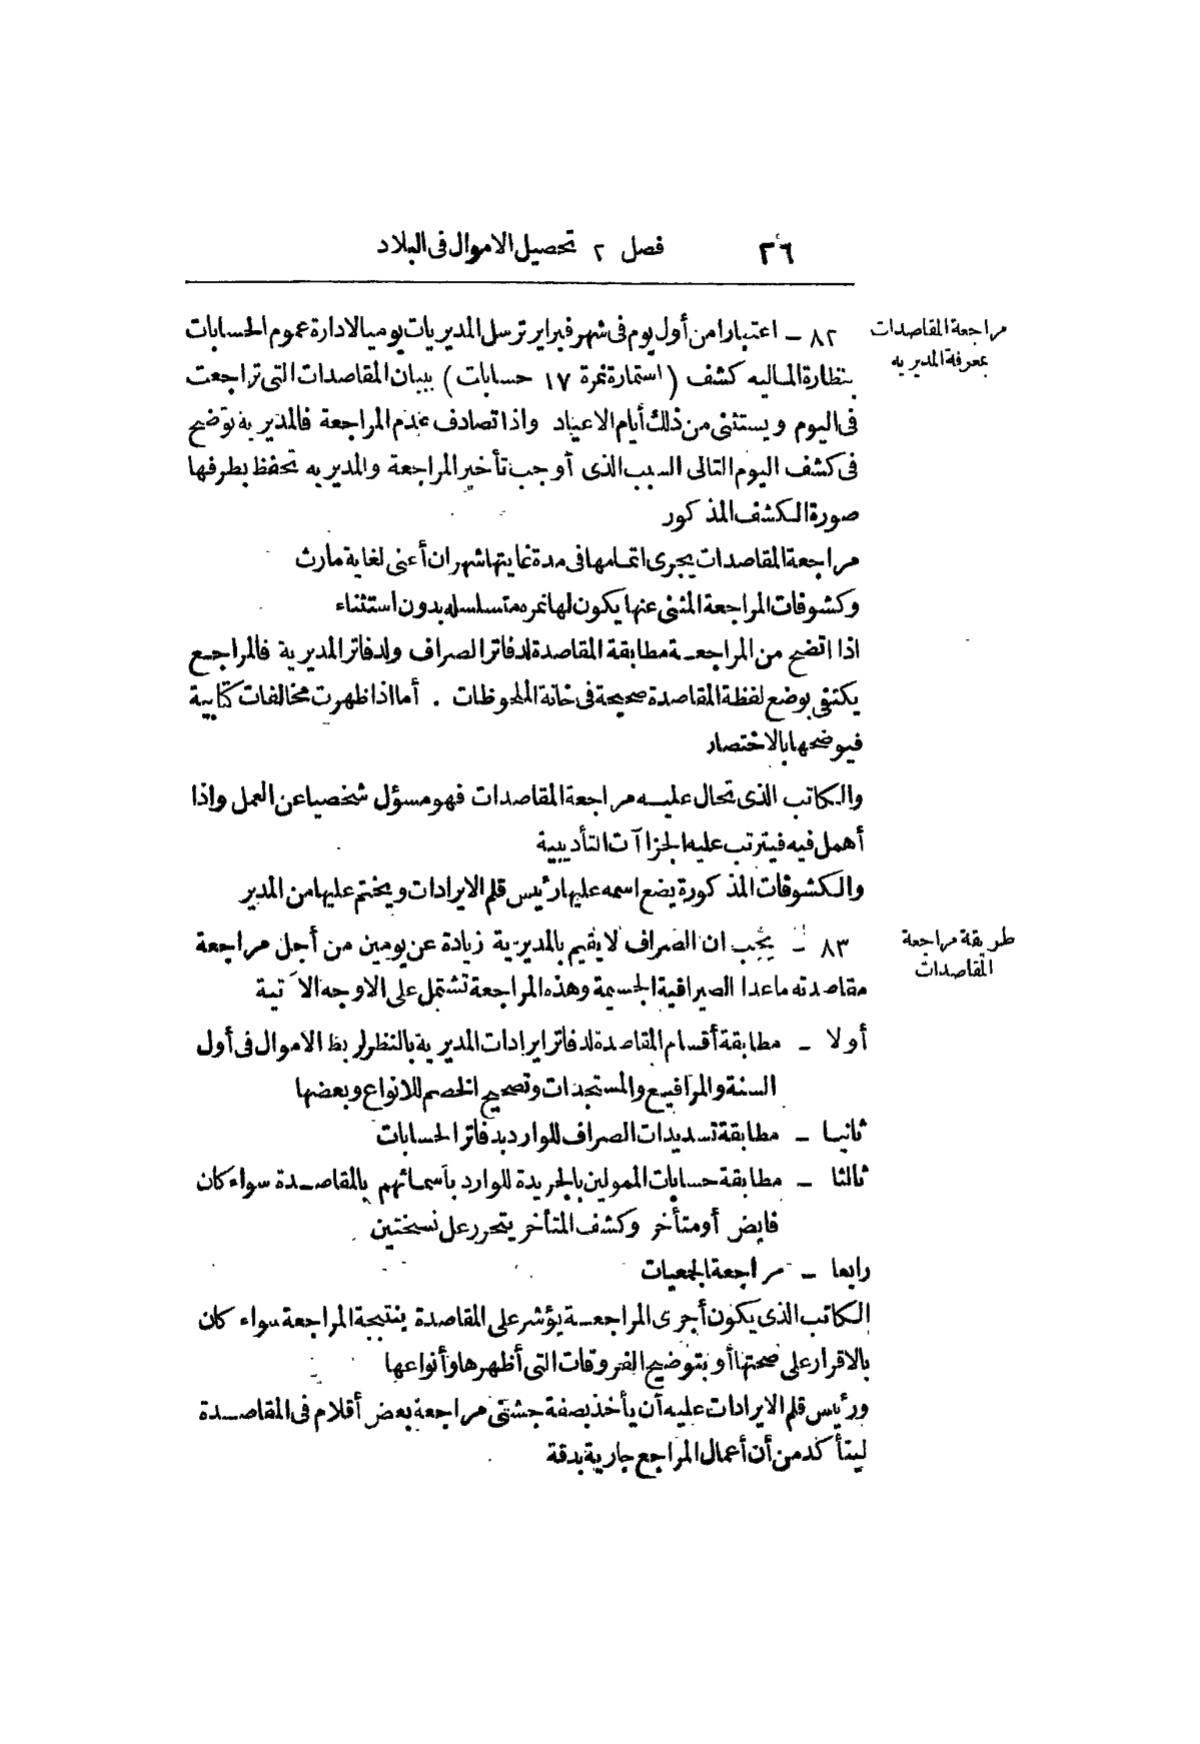 ٢٦ فصل ٢ تحصيل الاموال فى البلاد
مراجعة المقاصدات
بمعرفة المديريه
٨٢ ــ اعتبارا من أول يوم فى شهر فبراير ترسل المديريات يوميا لادارة عموم الحسابات
بنظارة الماليه كشف (استمارة نمرة ١٧ حسابات) ببيان المقاصدات التى تراجعت
فى اليوم ويستثنى من ذلك أيام الاعياد واذا تصادف عدم المراجعة فالمديرية توضح
فى كشف اليوم التالى السبب الذى أوجب تأخير المراجعة والمديريه تحفظ بطرفها
صورة الكشف المذكور
مراجعة المقاصدات يجرى اتمامها فى مدة غايتها شهران أعنى لغاية مارث
وكشوفات المراجعة المنبى عنها يكون لها نمره متسلسله بدون استثناء
اذا اتضح من المراجعة مطابقة المقاصدة لدفاتر الصراف ولدفاتر المديرية فالمراجع
يكتفى بوضع لفظة المقاصدة صحيحة فى خانة الملحوظات . أما اذا ظهرت مخالفات كتابية
فيوضحها بالاختصار
والكاتب الذى تحال عليه مراجعة المقاصدات فهو مسؤل شخصيا عن العمل واذا
أهمل فيه فيترتب عليه الجزاآت التأديبية
والكشوفات المذكورة يضع اسمه عليها رئيس قلم الايرادات ويختم عليها من المدير
طريقة مراجعة
المقاصدات
٨٣ ــ يجب ان الصراف لا يقيم بالمديرية زيادة عن يومين من أجل مراجعة
مقاصدته ماعدا الصيرافية الجسيمة وهذه المراجعة تشتمل على الاوجه الآتية
أولا ــ مطابقة أقسام المقاصدة لدفاتر ايرادات المديرية بالنظر لربط الاموال فى أول
السنة والمرافيع والمستجدات وتصحيح الخصم للانواع وبعضها
ثانيا ــ مطابقة تسديدات الصراف للوارد بدفاتر الحسابات
ثالثا ــ مطابقة حسابات الممولين بالجريدة للوارد بأسمائهم بالمقاصدة سواء كان
فايض أو متأخر وكشف المتأخر يتحرر عل نسختين
رابعا ــ مراجعة الجمعيات
الكاتب الذى يكون أجرى المراجعة يؤشر على المقاصدة بنتيجة المراجعة سواء كان
بالاقرار على صحتها أو بتوضيح الفروقات التى أظهرها وأنواعها
ورئيس قلم الايرادات عليه أن يأخذ بصفة جشنى مراجعة بعض أقلام فى المقاصدة
ليتأكد من أن أعمال المراجع جارية بدقة